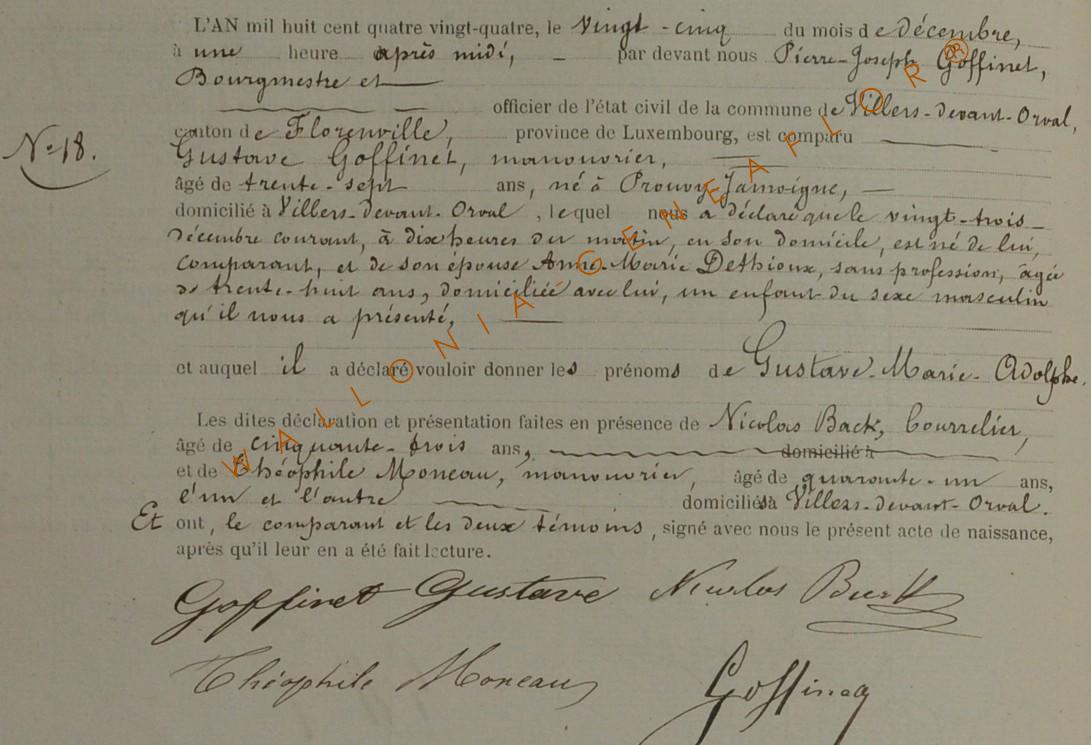 L'AN mil huit cent quatre vingt-quatre, le vingt-cinq du mois de décembre,
à une heure après midi, - par devant nous Pierre-Joseph Goffinet,
Bourgmestre et
officier de l'état civil de la commune de Villers-devant-Orval,
canton de Florenville, province de Luxembourg, est comparu
N° 18.
Gustave Goffinet, manouvrier,
âgé de trente-sept ans, né à Prouvy Jamoigne,
domicilié à Villers-devant-Orval, lequel nous a déclaré que le vingt-trois
décembre courant, à dix heures du matin, en son domicile, est né de lui,
comparant, et de son épouse Anne-Marie Dethioux, sans profession, âgée
de trente-huit ans, domiciliée avec lui, un enfant du sexe masculin
qu'il nous a présenté,
et auquel il a déclaré vouloir donner les prénoms de Gustave-Marie-Adolphe.
Les dites déclaration et présentation faites en présence de Nicolas Back, Courrelier,
âgé de cinquante-trois ans, domicilié à
et de Théophile Moneau, manouvrier, âgé de quarante-un ans,
l'un et l'autre domiciliés à Villers-devant-Orval.
Et ont, le comparant et les deux témoins, signé avec nous le présent acte de naissance,
après qu'il leur en a été fait lecture.
Goffinet Gustave Nicolas Back
Théophile Moneau Goffinet
WALLONIA GENEAFLOR OR